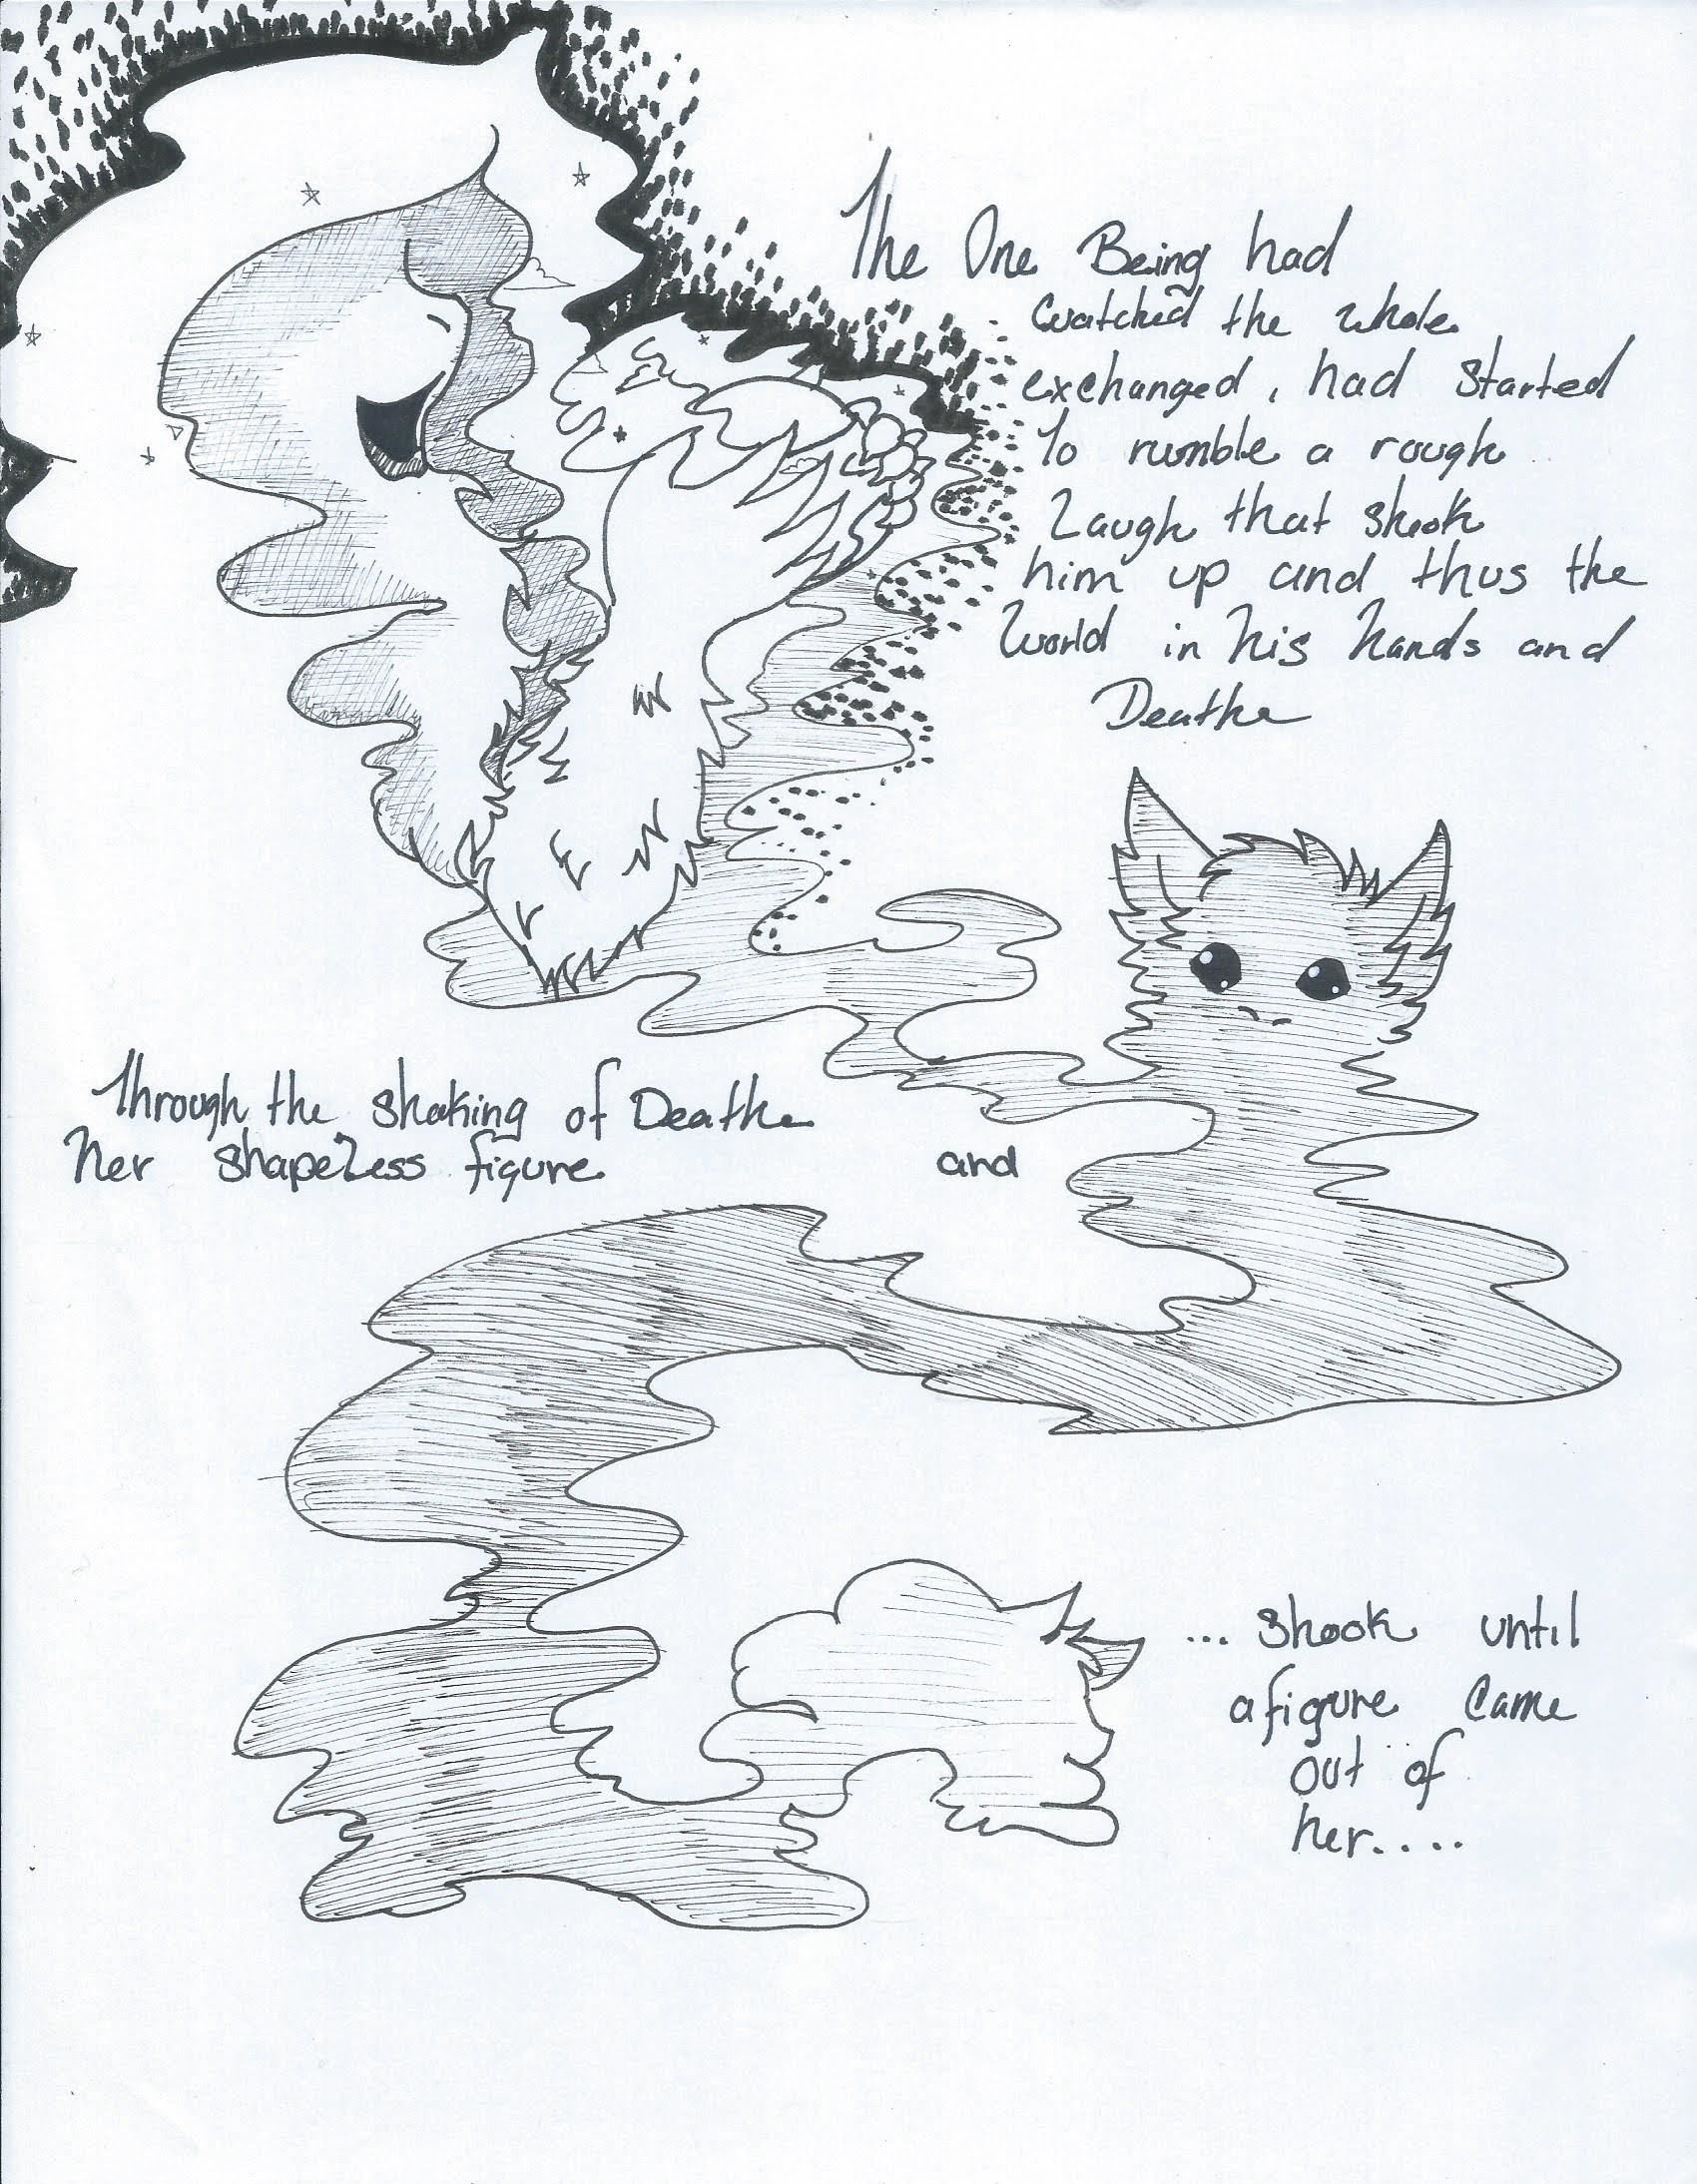 The One Being had
watched the whole
exchanged, had started
To rumble a rough
Laugh that shook
him up and thus the
World in his hands and
Deathe
Through the shaking of Deathe
her shapeless figure and
... shook until
a figure came
out of
her....